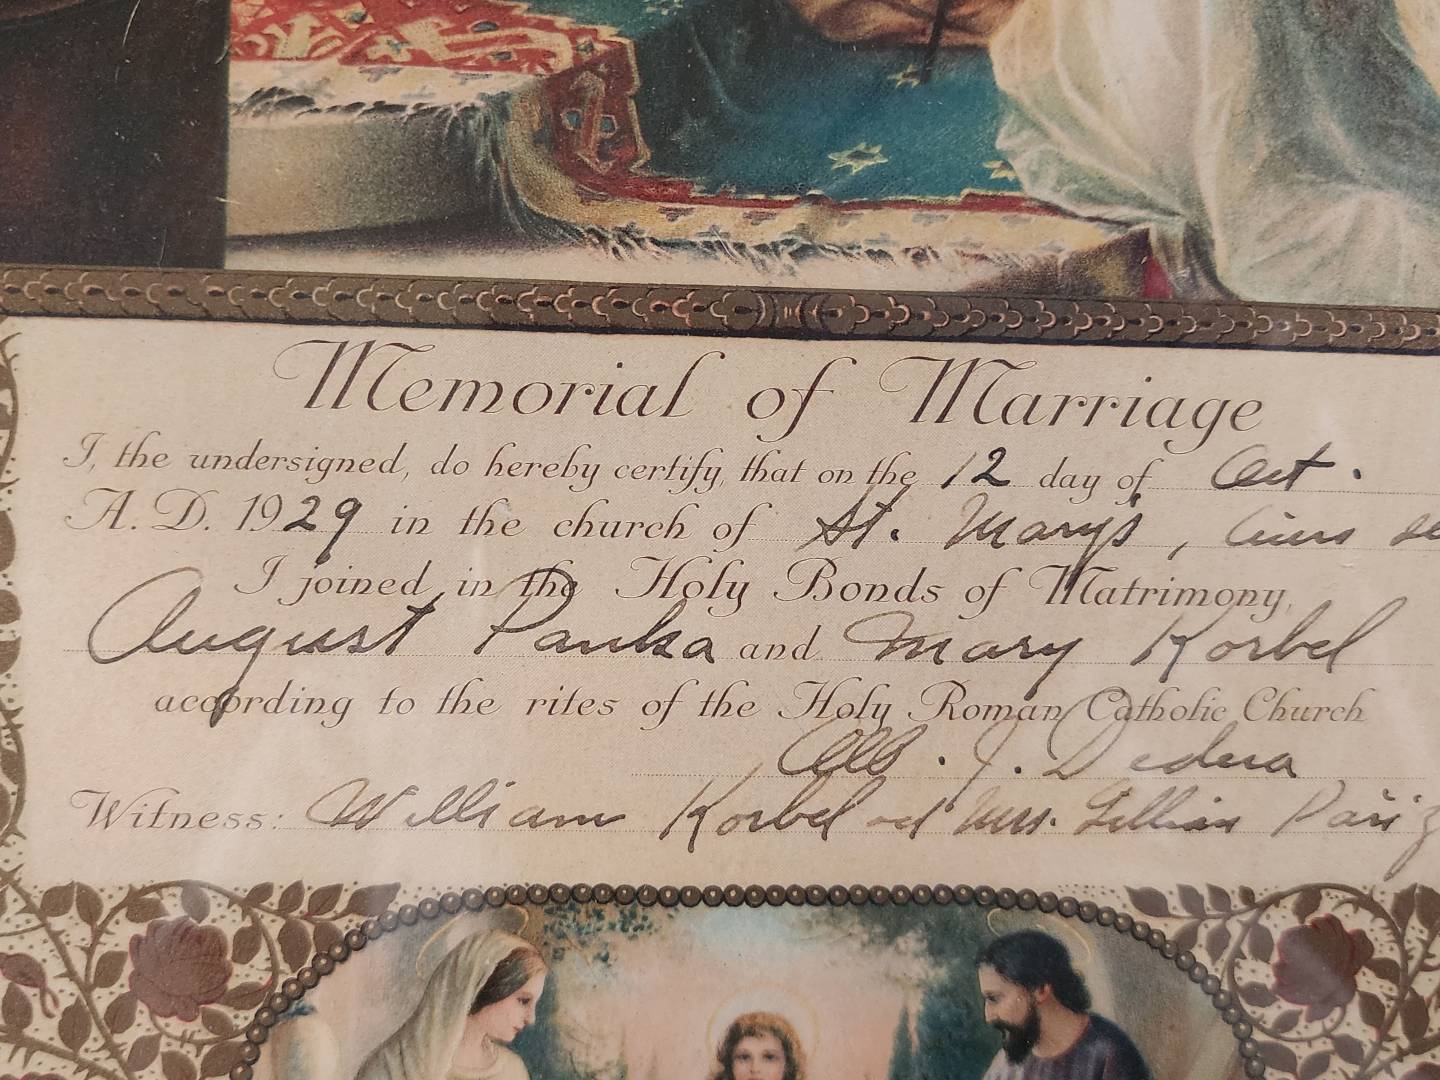 Memorial of Marriage
I, the undersigned, do hereby certify, that on the 12 day of Oct.
A. D. 1929 in the church of St. Mary's,
I joined in the Holy Bonds of Matrimony,
August Panka and Mary Korbel
according to the rites of the Holy Roman Catholic Church
J. Dedera
Witness: William Korbel and Mrs. Lillian Pařiz